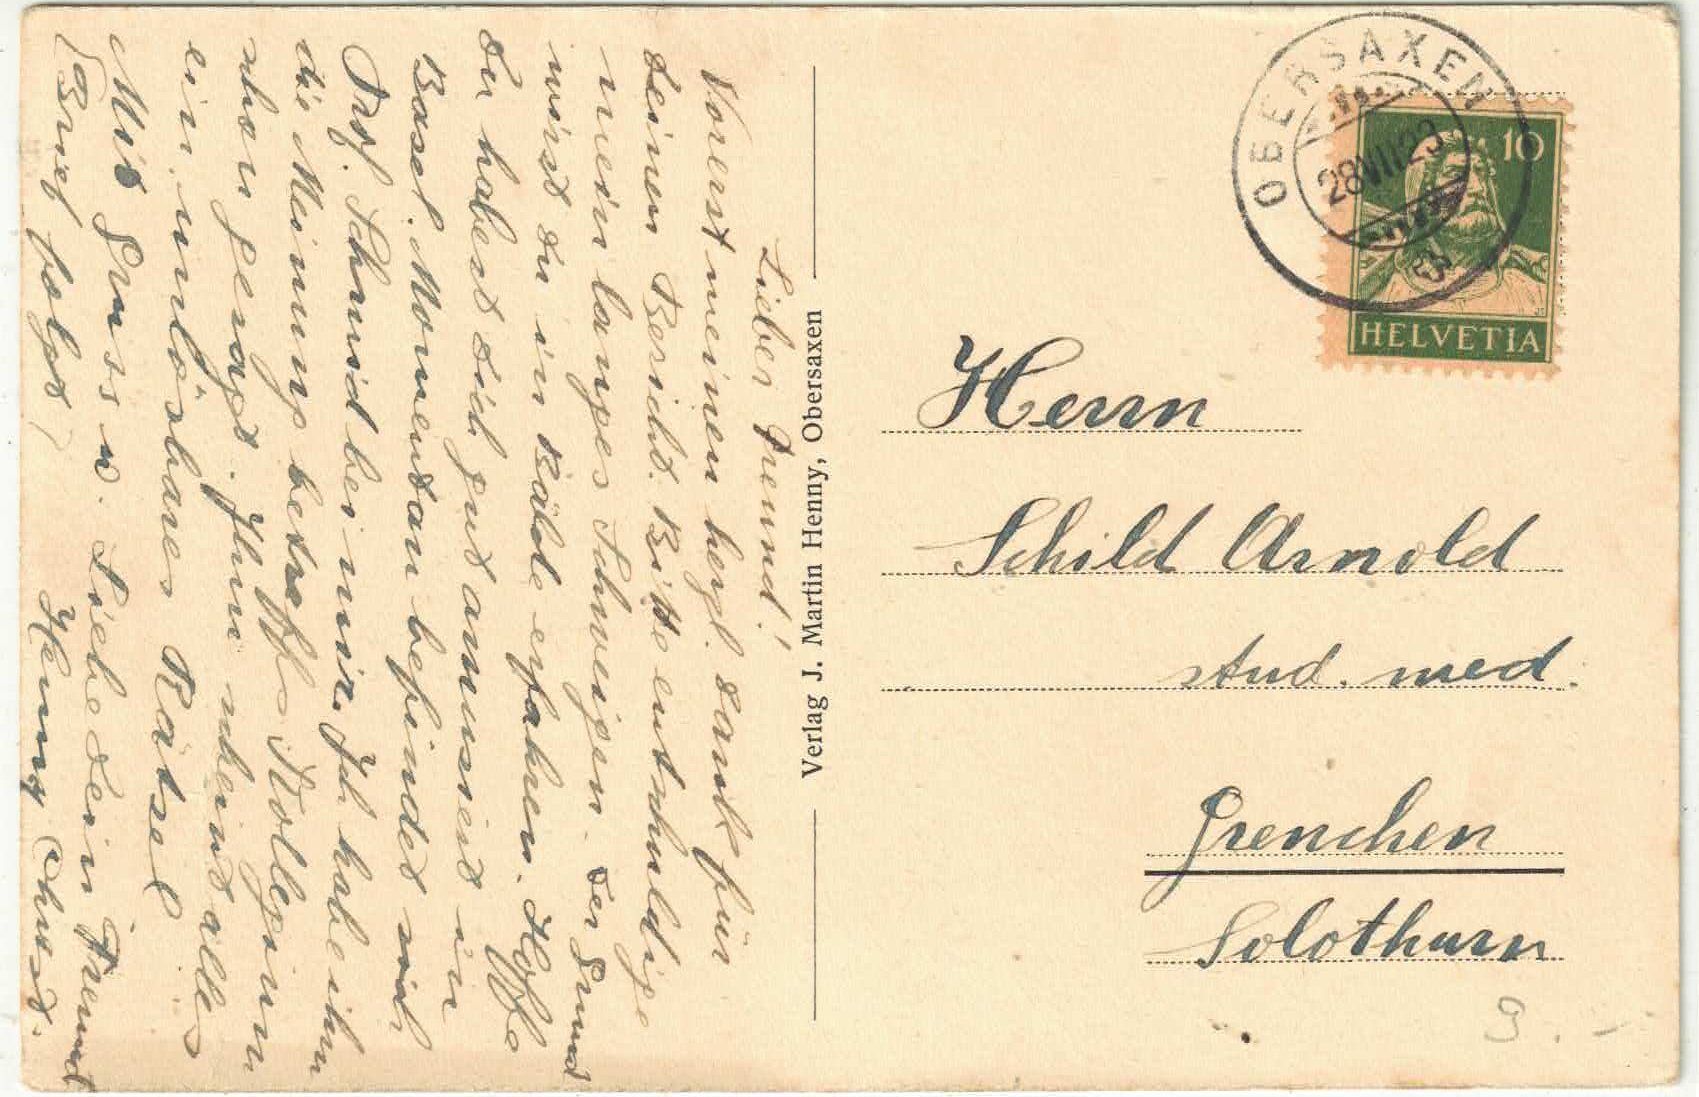 Lieber Freund!
Vorerst meinen herzl. Dank für
deinen Bericht. Bitte entschuldige
mein langes Schweigen. Der Grund
wirst du in Bälde erfahren. Hoffe
du habest dich gut amusiert in
Basel. Momentan befindet sich
Prof. Schmid bei mir. Ich habe ihm
die Meinung betreffs Kollegium
schon gesagt. Ihm scheint alles
ein unlösbares Rätsel
Mit Gruss u. Liebe dein Freund
(Brief folgt) Henny Christ.
Verlag J. Martin Henny, Obersaxen
OBERSAXEN
28 VII 23
10
HELVETIA
Herrn
Schild Arnold
stud. med.
Grenchen
Solothurn
9.-